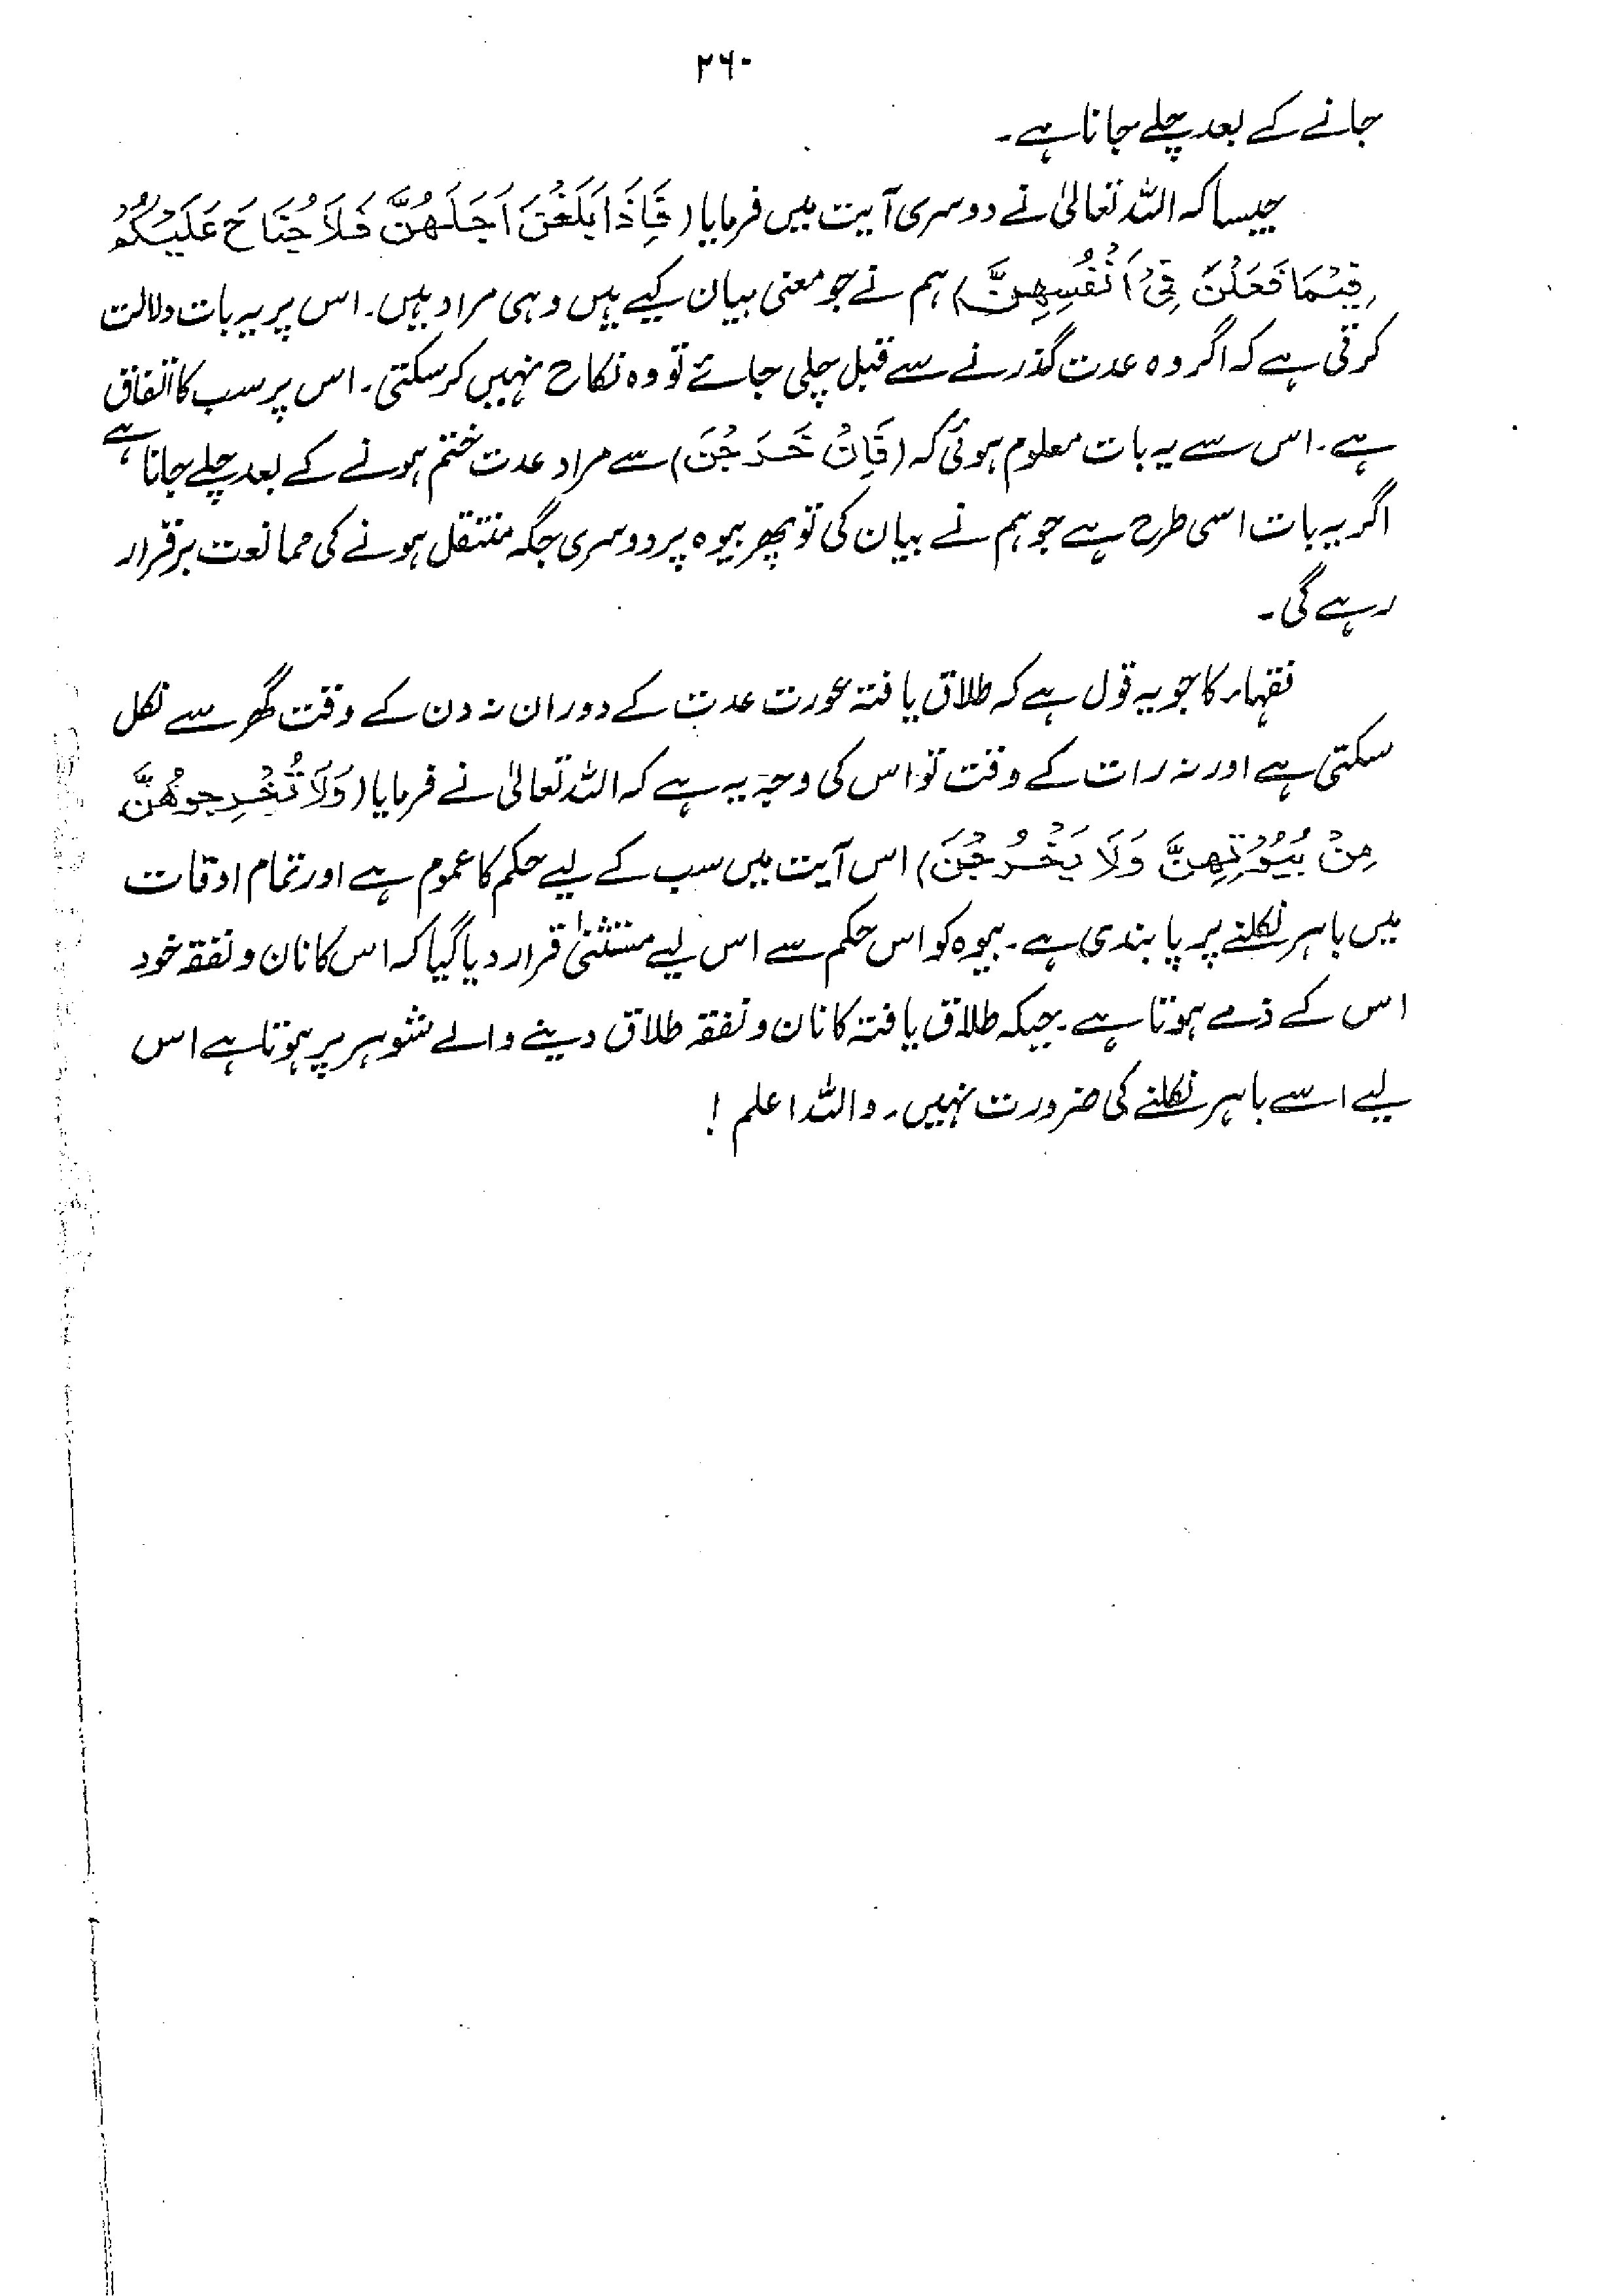 ۲۶۰
جانے کے بعد چلے جانا ہے۔
جیسا کہ اللہ تعالیٰ نے دوسری آیت میں فرمایا (فَاِذَا بَلَغْنَ اَجَلَهُنَّ فَلَا جُنَاحَ عَلَيْكُمْ
فِيْمَا فَعَلْنَ فِيْ اَنْفُسِهِنَّ) ہم نے جو معنی بیان کیے ہیں وہی مراد ہیں۔ اس پر یہ بات دلالت
کرتی ہے کہ اگر وہ عدت گذرنے سے قبل چلی جائے تو وہ نکاح نہیں کرسکتی۔ اس پر سب کا اتفاق
ہے۔ اس سے یہ بات معلوم ہوئی کہ (فَاِنْ خَرَجْنَ) سے مراد عدت ختم ہونے کے بعد چلے جانا ہے
اگر یہ بات اسی طرح ہے جو ہم نے بیان کی تو پھر بیوہ پر دوسری جگہ منتقل ہونے کی ممانعت برقرار
رہے گی۔
فقہاء کا جو یہ قول ہے کہ طلاق یافتہ عورت عدت کے دوران نہ دن کے وقت گھر سے نکل
سکتی ہے اور نہ رات کے وقت تو اس کی وجہ یہ ہے کہ اللہ تعالیٰ نے فرمایا (وَلَا تُخْرِجوهُنَّ
مِنْ بُيُوْتِهِنَّ وَلَا يَخْرُجْنَ) اس آیت میں سب کے لیے حکم کا عموم ہے اور تمام اوقات
میں باہر نکلنے پر پابندی ہے۔ بیوہ کو اس حکم سے اس لیے مستثنیٰ قرار دیا گیا کہ اس کا نان و نفقہ خود
اس کے ذمے ہوتا ہے۔ جبکہ طلاق یافتہ کا نان و نفقہ طلاق دینے والے شوہر پر ہوتا ہے اس
لیے اسے باہر نکلنے کی ضرورت نہیں۔ واللہ اعلم!